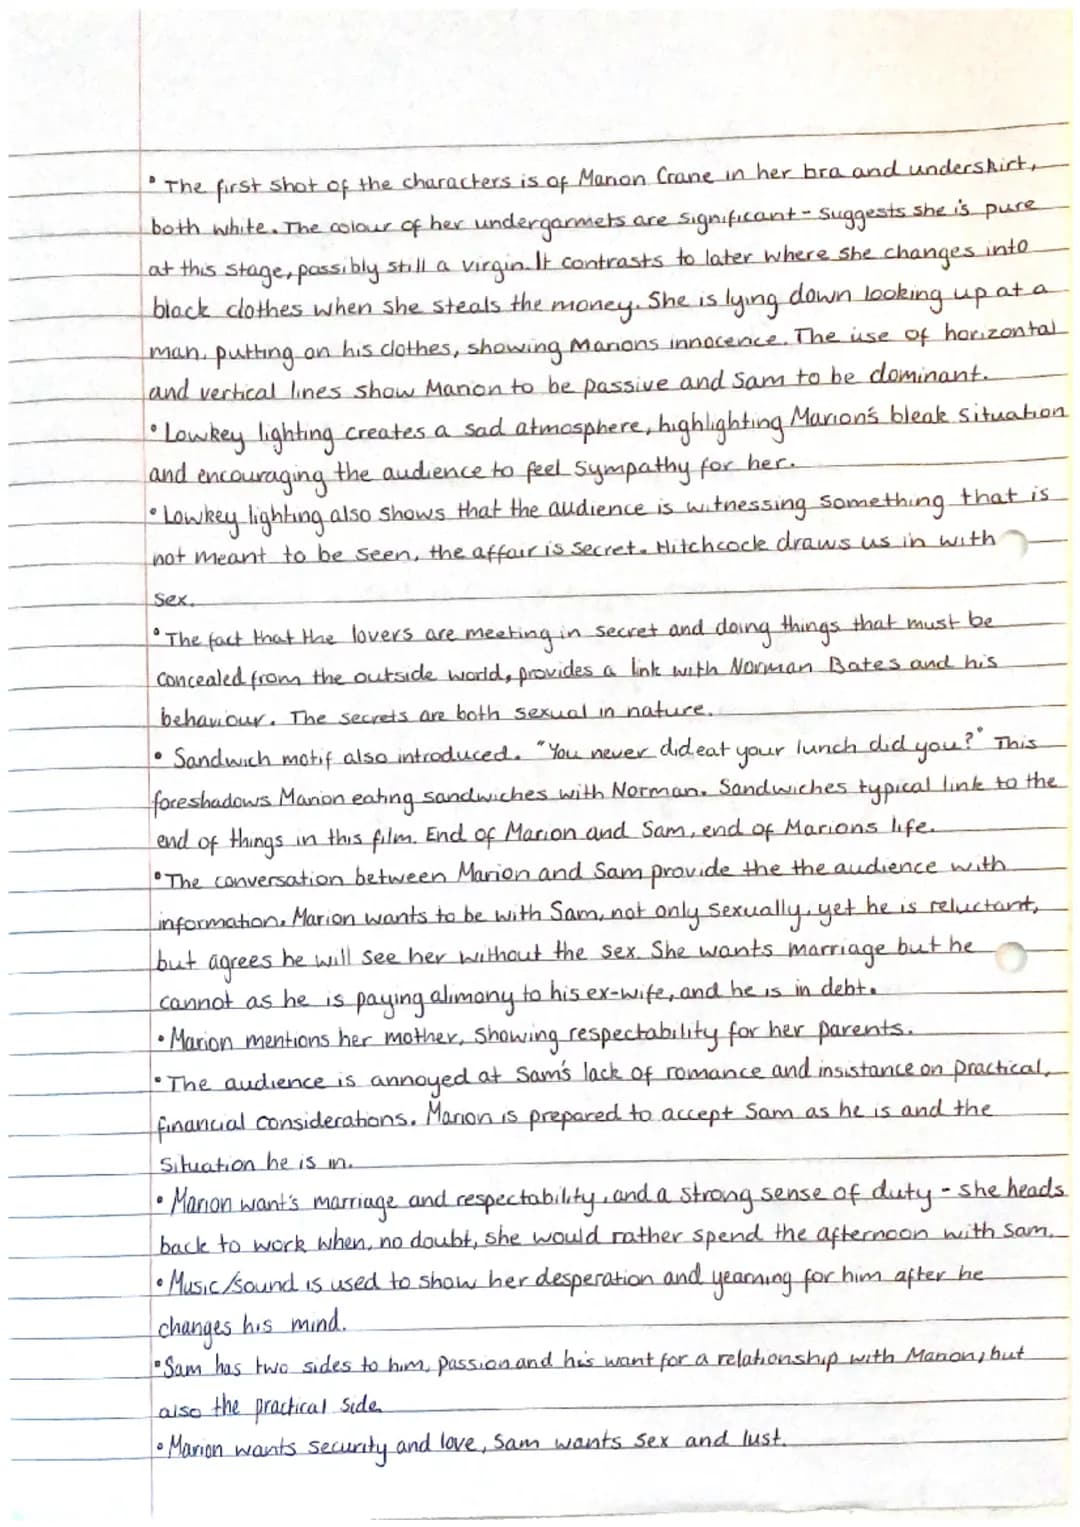 • The first shot of the characters is of Marion Crane in her bra and underskirt,
both white. The colour of her undergarmets are significant - suggests she is pure
at this stage, possibly still a virgin. It contrasts to later where she changes into
black clothes when she steals the money. She is lying down looking up at a
man, putting on his clothes, showing Marions innocence. The use of horizontal
and vertical lines show Marion to be passive and Sam to be dominant.
• Lowkey lighting creates a sad atmosphere, highlighting Marion's bleak situation
and encouraging the audience to feel sympathy for her.
• Lowkey lighting also shows that the audience is witnessing something that is
not meant to be seen, the affair is secret. Hitchcock draws us in with
sex.
• The fact that the lovers are meeting in secret and doing things that must be
concealed from the outside world, provides a link with Norman Bates and his
behaviour. The secrets are both sexual in nature.
• Sandwich motif also introduced. "You never did eat your lunch did you?" This
foreshadows Marion eating sandwiches with Norman. Sandwiches typical link to the
end of things in this film. End of Marion and Sam, end of Marions life.
• The conversation between Marion and Sam provide the the audience with
information. Marion wants to be with Sam, not only sexually, yet he is reluctant,
but agrees he will see her without the sex. She wants marriage but he
cannot as he is paying alimony to his ex-wife, and he is in debt.
• Marion mentions her mother, showing respectability for her parents.
• The audience is annoyed at Sam's lack of romance and insistance on practical,
financial considerations. Marion is prepared to accept Sam as he is and the
situation he is in.
• Marion want's marriage and respectability, and a strong sense of duty - she heads
back to work when, no doubt, she would rather spend the afternoon with Sam.
• Music/sound is used to show her desperation and yearning for him after he
changes his mind.
• Sam has two sides to him, passion and his want for a relationship with Marion, but
also the practical side
• Marion wants security and love, Sam wants sex and lust.